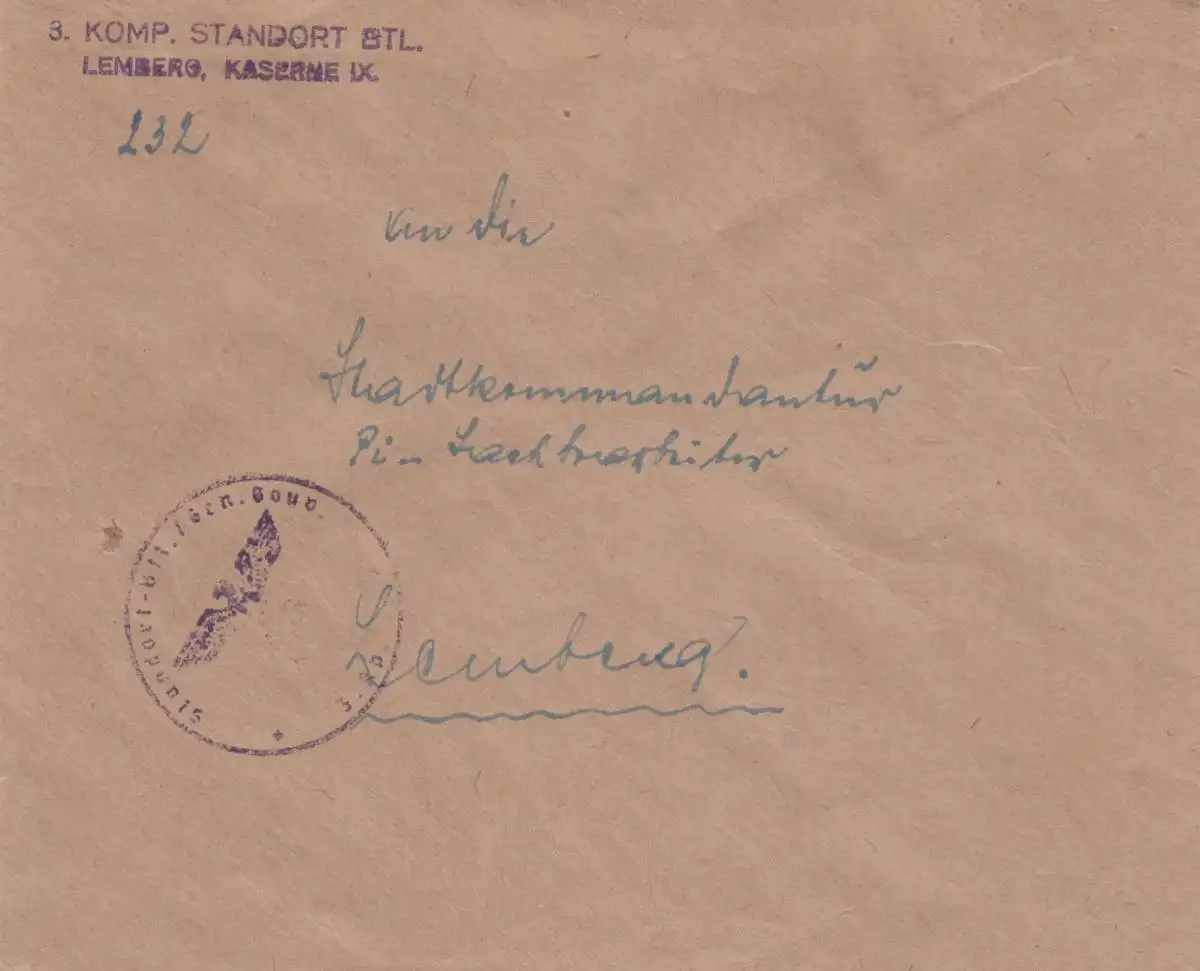 3. KOMP. STANDORT BTL.
LEMBERG, KASERNE IX.
232
An die
Stadtkommandantur
Pi-Sachbearbeiter
Lemberg.
Standort-Btl. / Gen. Gouv.